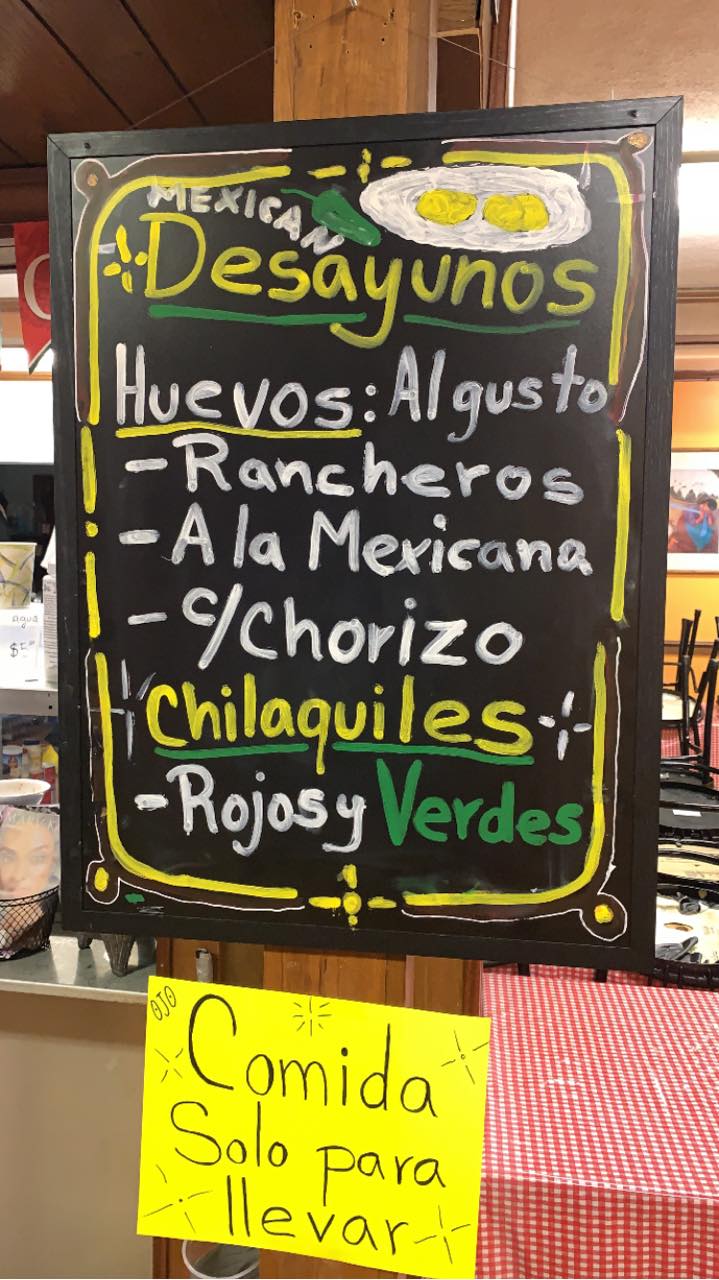 MEXICAN
Desayunos
Huevos: Al gusto
- Rancheros
- A la Mexicana
- c/Chorizo
Chilaquiles
- Rojos y Verdes
agua
OJO
Comida
Solo para
llevar